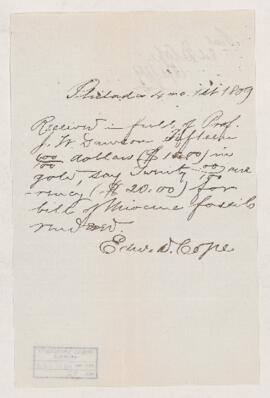 Philada 4 mo. 1st 1869
Received in full, of Prof.
J. W. Dawson Fifteen
00/100 dollars ($15.00) in
gold, say Twenty 00/100 cur
-rency ($20.00) for
bill of Miocene fossils
rendered.
Edw. D. Cope